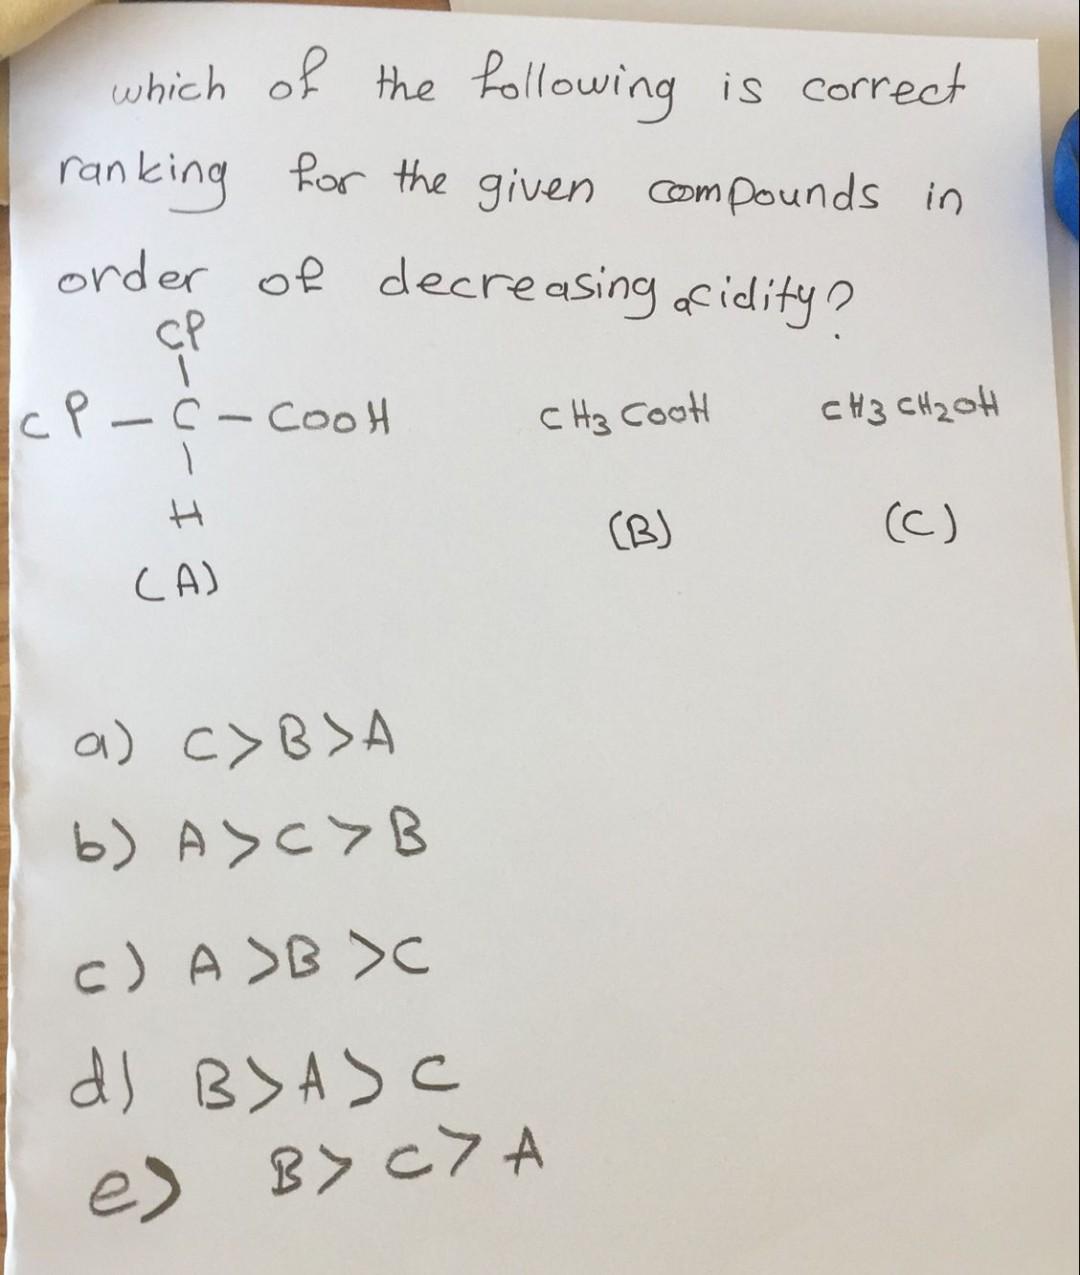 which of the following is correct
ranking for the given compounds in
order of decreasing acidity?
Cl
Cl - C - COOH CH3 COOH CH3 CH2OH
H
(A) (B) (C)
a) C>B>A
b) A>C>B
c) A>B>C
d) B>A>C
e) B>C>A